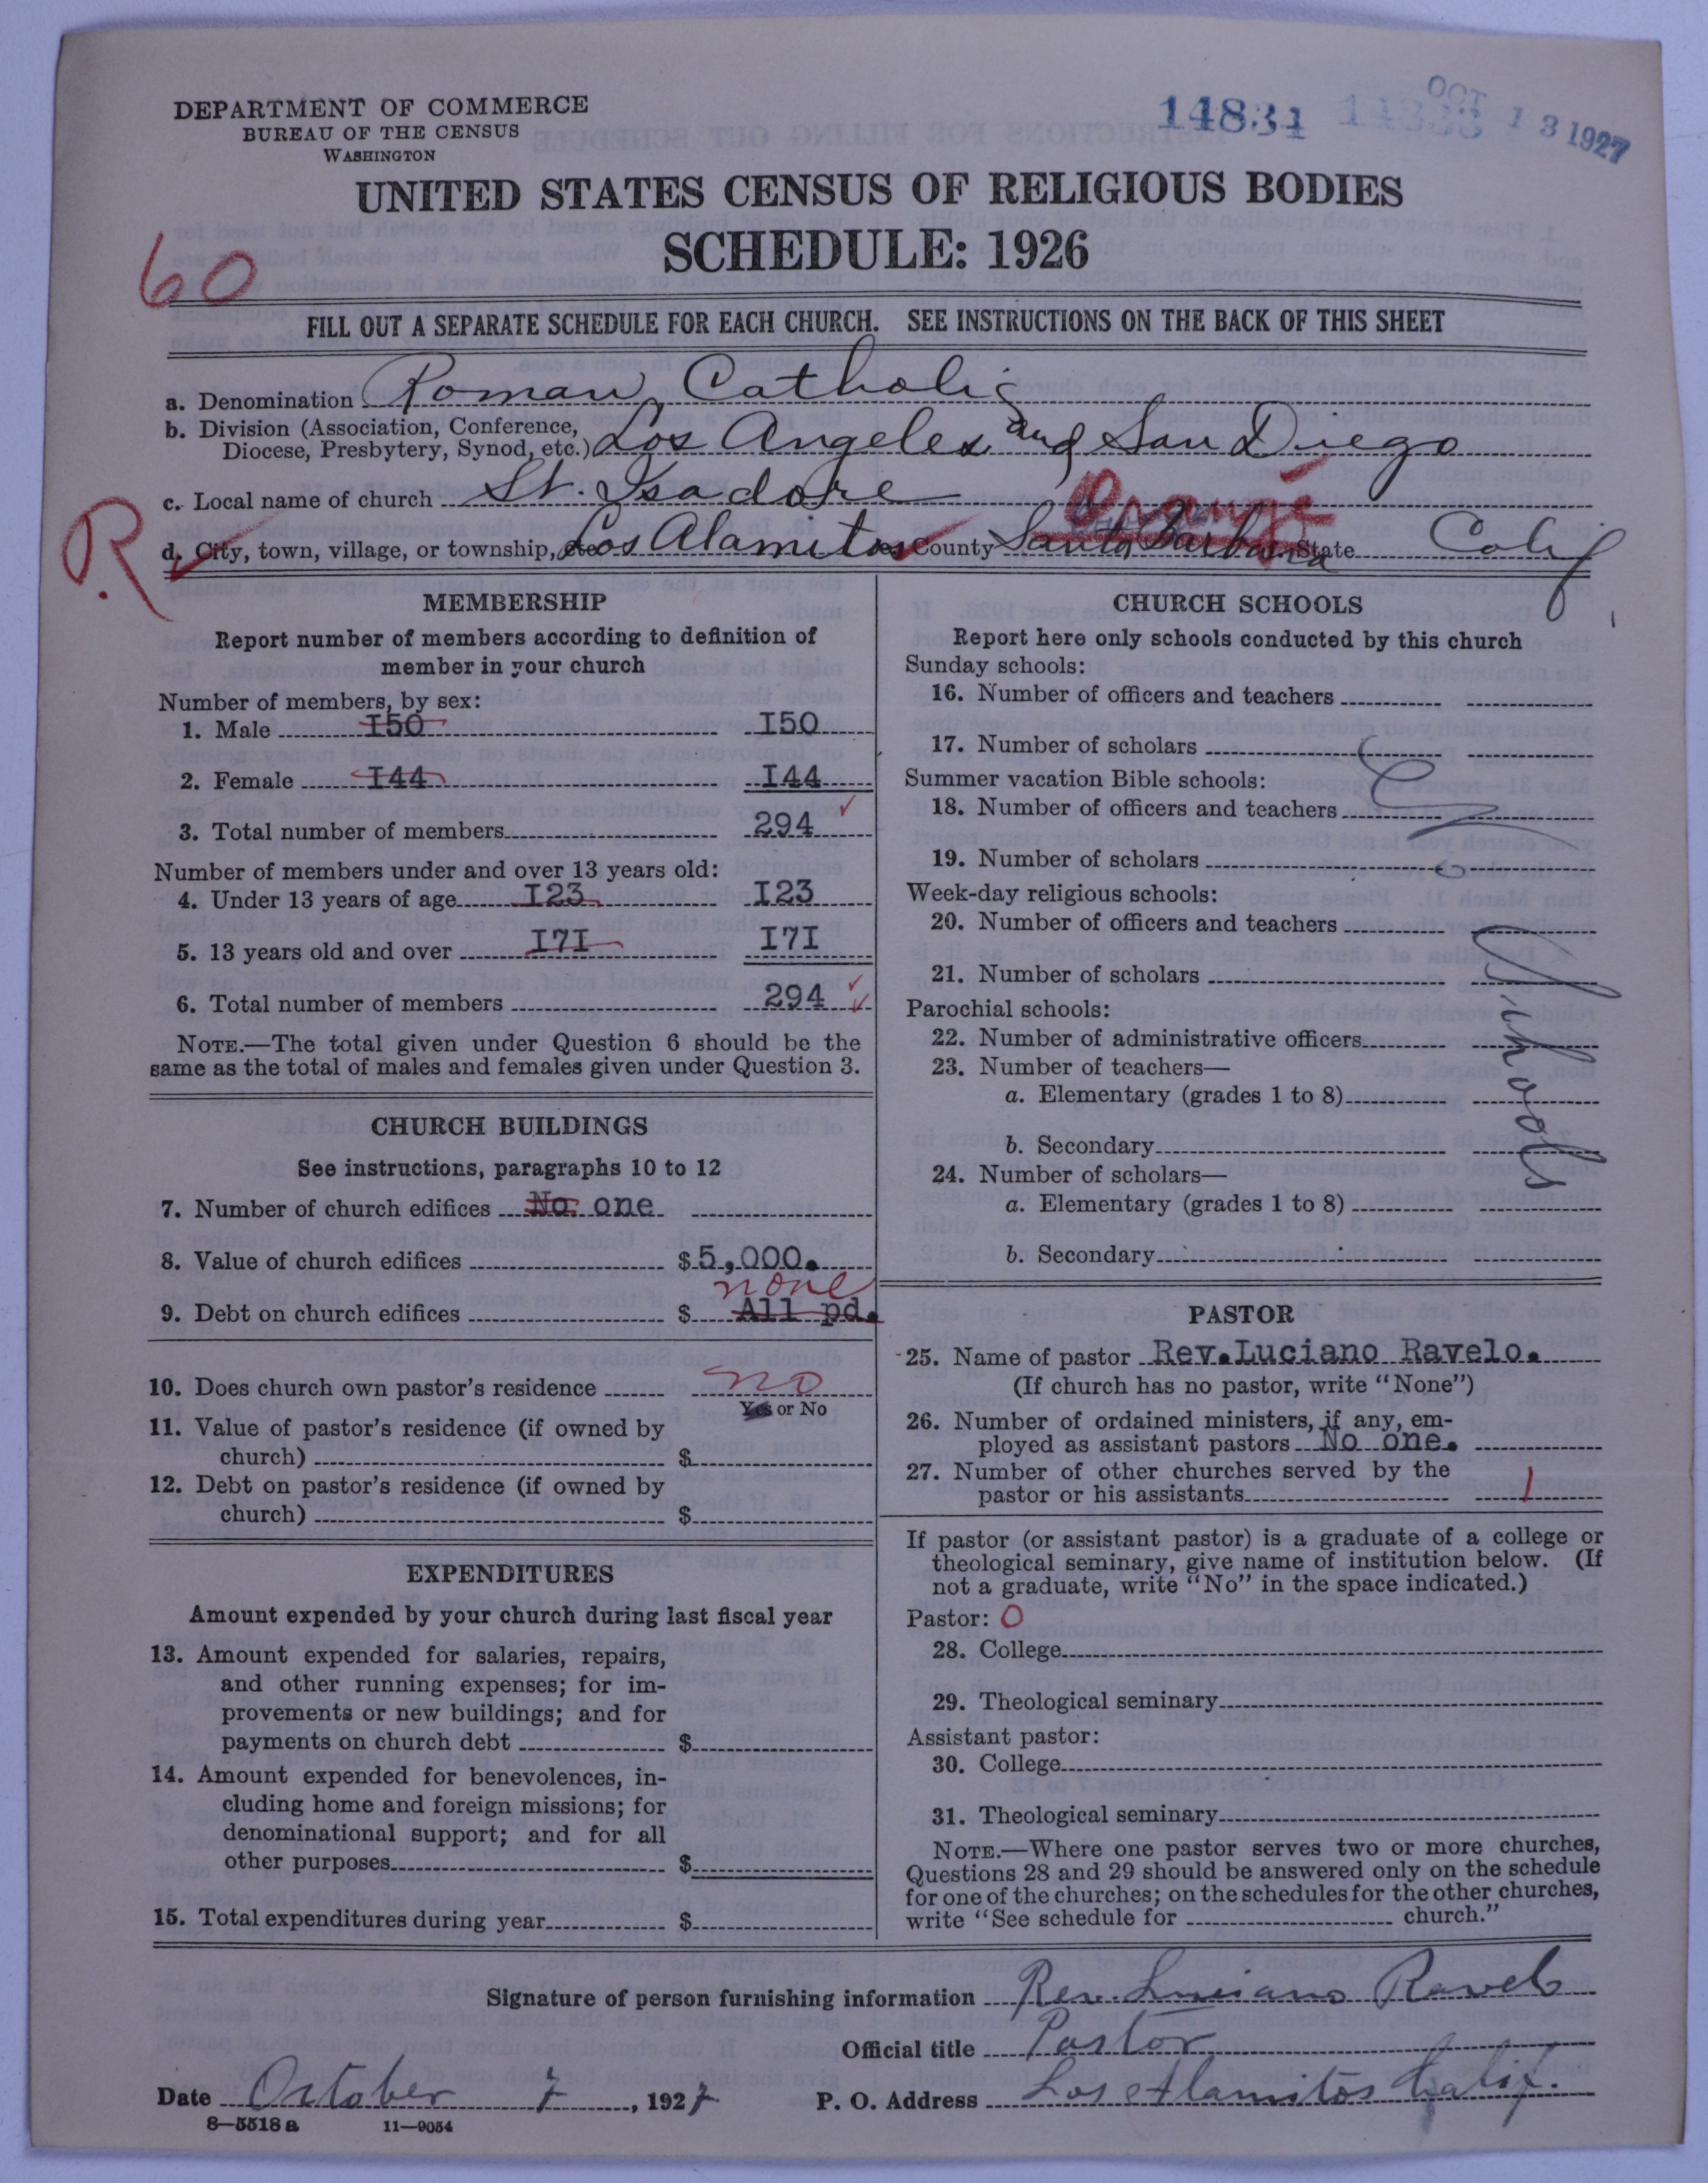 DEPARTMENT OF COMMERCE
BUREAU OF THE CENSUS
WASHINGTON
14834
OCT 13 1927
UNITED STATES CENSUS OF RELIGIOUS BODIES
SCHEDULE: 1926
60
FILL OUT A SEPARATE SCHEDULE FOR EACH CHURCH. SEE INSTRUCTIONS ON THE BACK OF THIS SHEET
a. Denomination Roman Catholic
b. Division (Association, Conference,
Diocese, Presbytery, Synod, etc.) Los Angeles and San Diego
c. Local name of church St. Isadore
Orange
R.
d. City, town, village, or township, etc. Los Alamitos County Santa Barbara State Calif
MEMBERSHIP
Report number of members according to definition of
member in your church
Number of members, by sex:
1. Male I50 I50
2. Female I44 I44
3. Total number of members 294
Number of members under and over 13 years old:
4. Under 13 years of age I23 I23
5. 13 years old and over I7I I7I
6. Total number of members 294
NOTE.—The total given under Question 6 should be the
same as the total of males and females given under Question 3.
CHURCH BUILDINGS
See instructions, paragraphs 10 to 12
7. Number of church edifices No one
8. Value of church edifices $5,000.
none
9. Debt on church edifices $ All pd.
10. Does church own pastor's residence no
Yes or No
11. Value of pastor's residence (if owned by
church) $
12. Debt on pastor's residence (if owned by
church) $
EXPENDITURES
Amount expended by your church during last fiscal year
13. Amount expended for salaries, repairs,
and other running expenses; for im-
provements or new buildings; and for
payments on church debt $
14. Amount expended for benevolences, in-
cluding home and foreign missions; for
denominational support; and for all
other purposes $
15. Total expenditures during year $
CHURCH SCHOOLS
Report here only schools conducted by this church
Sunday schools:
16. Number of officers and teachers
17. Number of scholars
Summer vacation Bible schools:
18. Number of officers and teachers
19. Number of scholars
Week-day religious schools:
20. Number of officers and teachers
21. Number of scholars
Parochial schools:
22. Number of administrative officers
23. Number of teachers—
a. Elementary (grades 1 to 8)
b. Secondary
24. Number of scholars—
a. Elementary (grades 1 to 8)
b. Secondary
PASTOR
25. Name of pastor Rev.Luciano Ravelo.
(If church has no pastor, write "None")
26. Number of ordained ministers, if any, em-
ployed as assistant pastors No one.
27. Number of other churches served by the
pastor or his assistants 1
If pastor (or assistant pastor) is a graduate of a college or
theological seminary, give name of institution below. (If
not a graduate, write "No" in the space indicated.)
Pastor: O
28. College
29. Theological seminary
Assistant pastor:
30. College
31. Theological seminary
NOTE.—Where one pastor serves two or more churches,
Questions 28 and 29 should be answered only on the schedule
for one of the churches; on the schedules for the other churches,
write "See schedule for church."
Signature of person furnishing information Rev. Luciano Ravelo
Official title Pastor
Date October 7, 1927 P. O. Address Los Alamitos Calif.
8—5518 a 11—9054